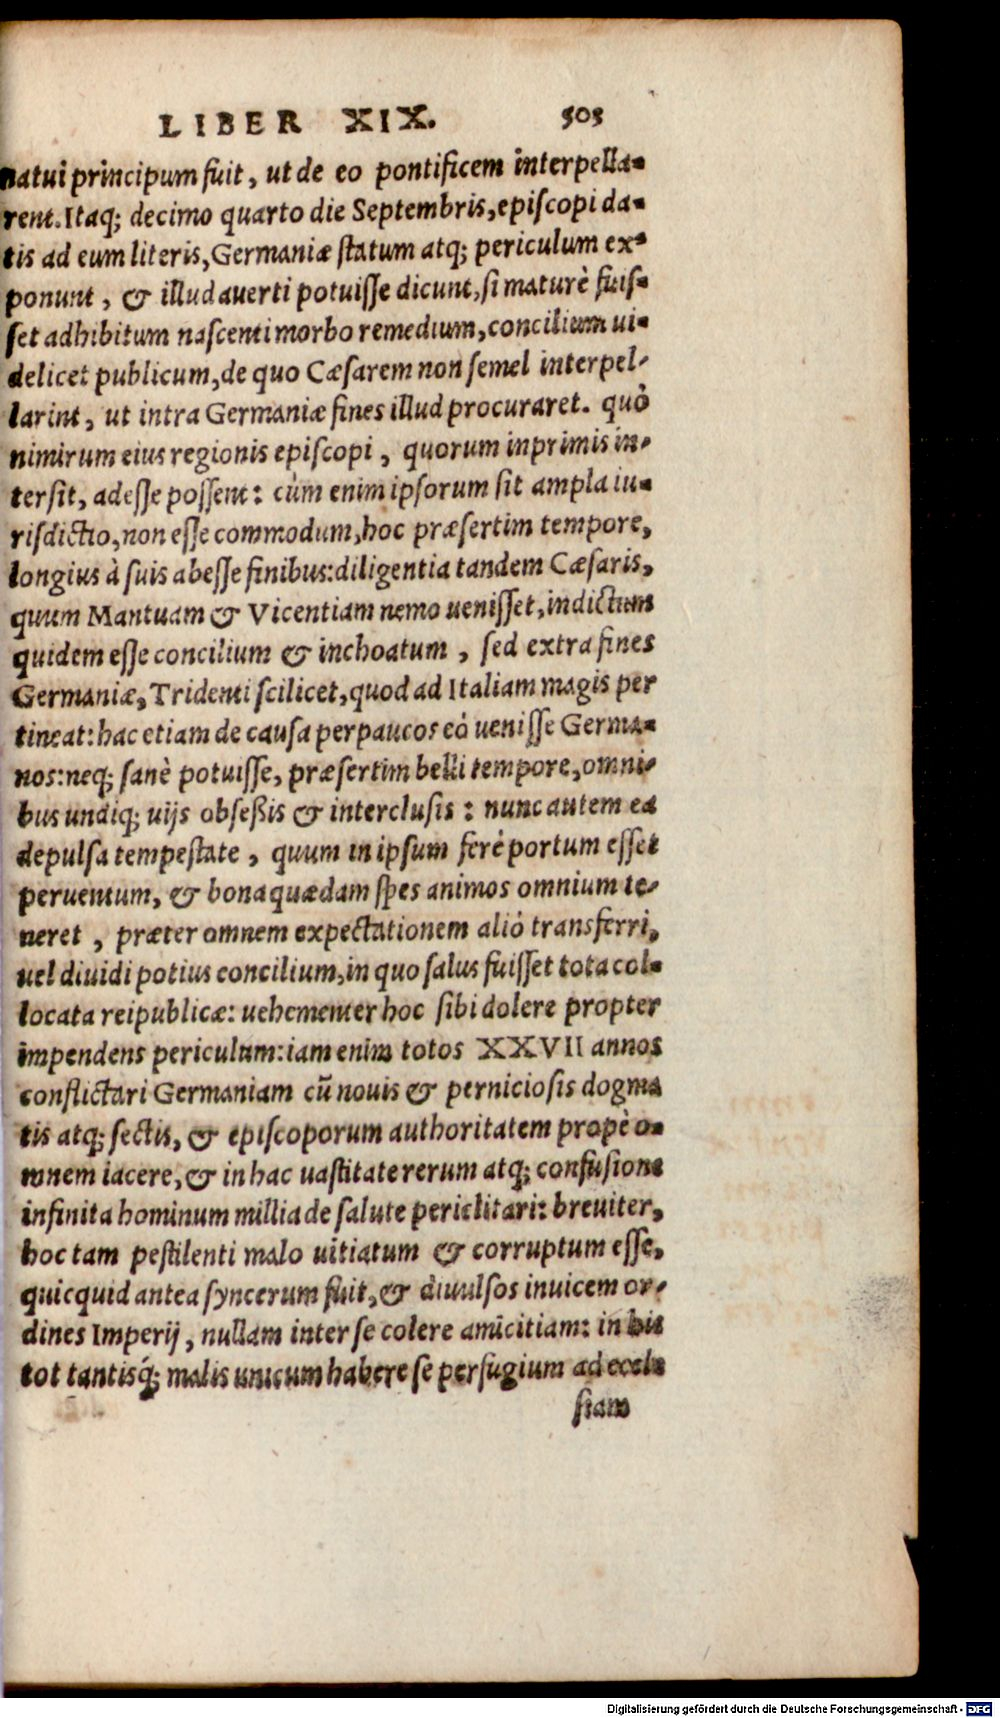 LIBER XIX. 503
natui principum fuit, ut de eo pontificem interpella-
rent. Itaq; decimo quarto die Septembris, episcopi da-
tis ad eum literis, Germaniæ statum atq; periculum ex-
ponunt, & illud auerti potuisse dicunt, si maturè fuis-
set adhibitum nascenti morbo remedium, concilium ui-
delicet publicum, de quo Cæsarem non semel interpel-
larint, ut intra Germaniæ fines illud procuraret. quò
nimirum eius regionis episcopi, quorum inprimis in-
tersit, adesse possent: cùm enim ipsorum sit ampla iu-
risdictio, non esse commodum, hoc præsertim tempore,
longius à suis abesse finibus: diligentia tandem Cæsaris,
quum Mantuam & Vicentiam nemo uenisset, indictum
quidem esse concilium & inchoatum, sed extra fines
Germaniæ, Tridenti scilicet, quod ad Italiam magis per
tineat: hac etiam de causa perpaucos eò uenisse Germa-
nos: neq; sanè potuisse, præsertim belli tempore, omni-
bus undiq; uijs obseßis & interclusis: nunc autem ea
depulsa tempestate, quum in ipsum ferè portum esset
peruentum, & bona quædam spes animos omnium te-
neret, præter omnem expectationem aliò transferri,
uel diuidi potius concilium, in quo salus fuisset tota col-
locata reipublicæ: uehementer hoc sibi dolere propter
impendens periculum: iam enim totos XXVII annos
conflictari Germaniam cū nouis & perniciosis dogma
tis atq; sectis, & episcoporum authoritatem propè o-
mnem iacere, & in hac uastitate rerum atq; confusione
infinita hominum millia de salute periclitari: breuiter,
hoc tam pestilenti malo uitiatum & corruptum esse,
quicquid antea syncerum fuit, & diuulsos inuicem or-
dines Imperij, nullam inter se colere amicitiam: in his
tot tantisq́; malis unicum habere se perfugium ad eccle
siam
Digitalisierung gefördert durch die Deutsche Forschungsgemeinschaft - DFG